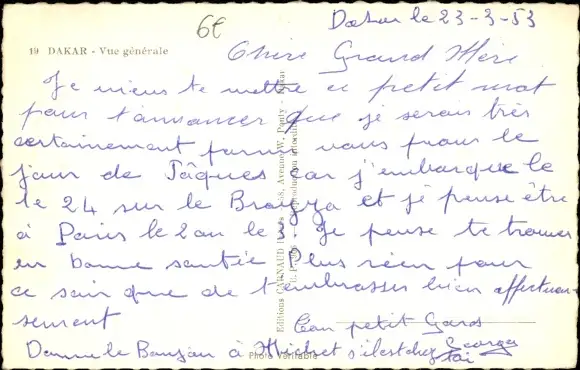 6€
Dakar le 23-3-53
19 DAKAR - Vue générale
Chère Grand Mère
Je viens te mettre ce petit mot
pour t'annoncer que je serais très
certainement parmi vous pour le
jour de Pâques car j'embarque le
le 24 sur le et je pense être
à Paris le 2 ou le 3. Je pense te trouver
en bonne santée Plus rien pour
ce soir que de t'embrasser bien affectueu-
sement
Ton petit Gars
Georges
Donne le Bonjour à Michel s'il est chez toi
Editions Avenue W. Ponty - Dakar
Photo Véritable